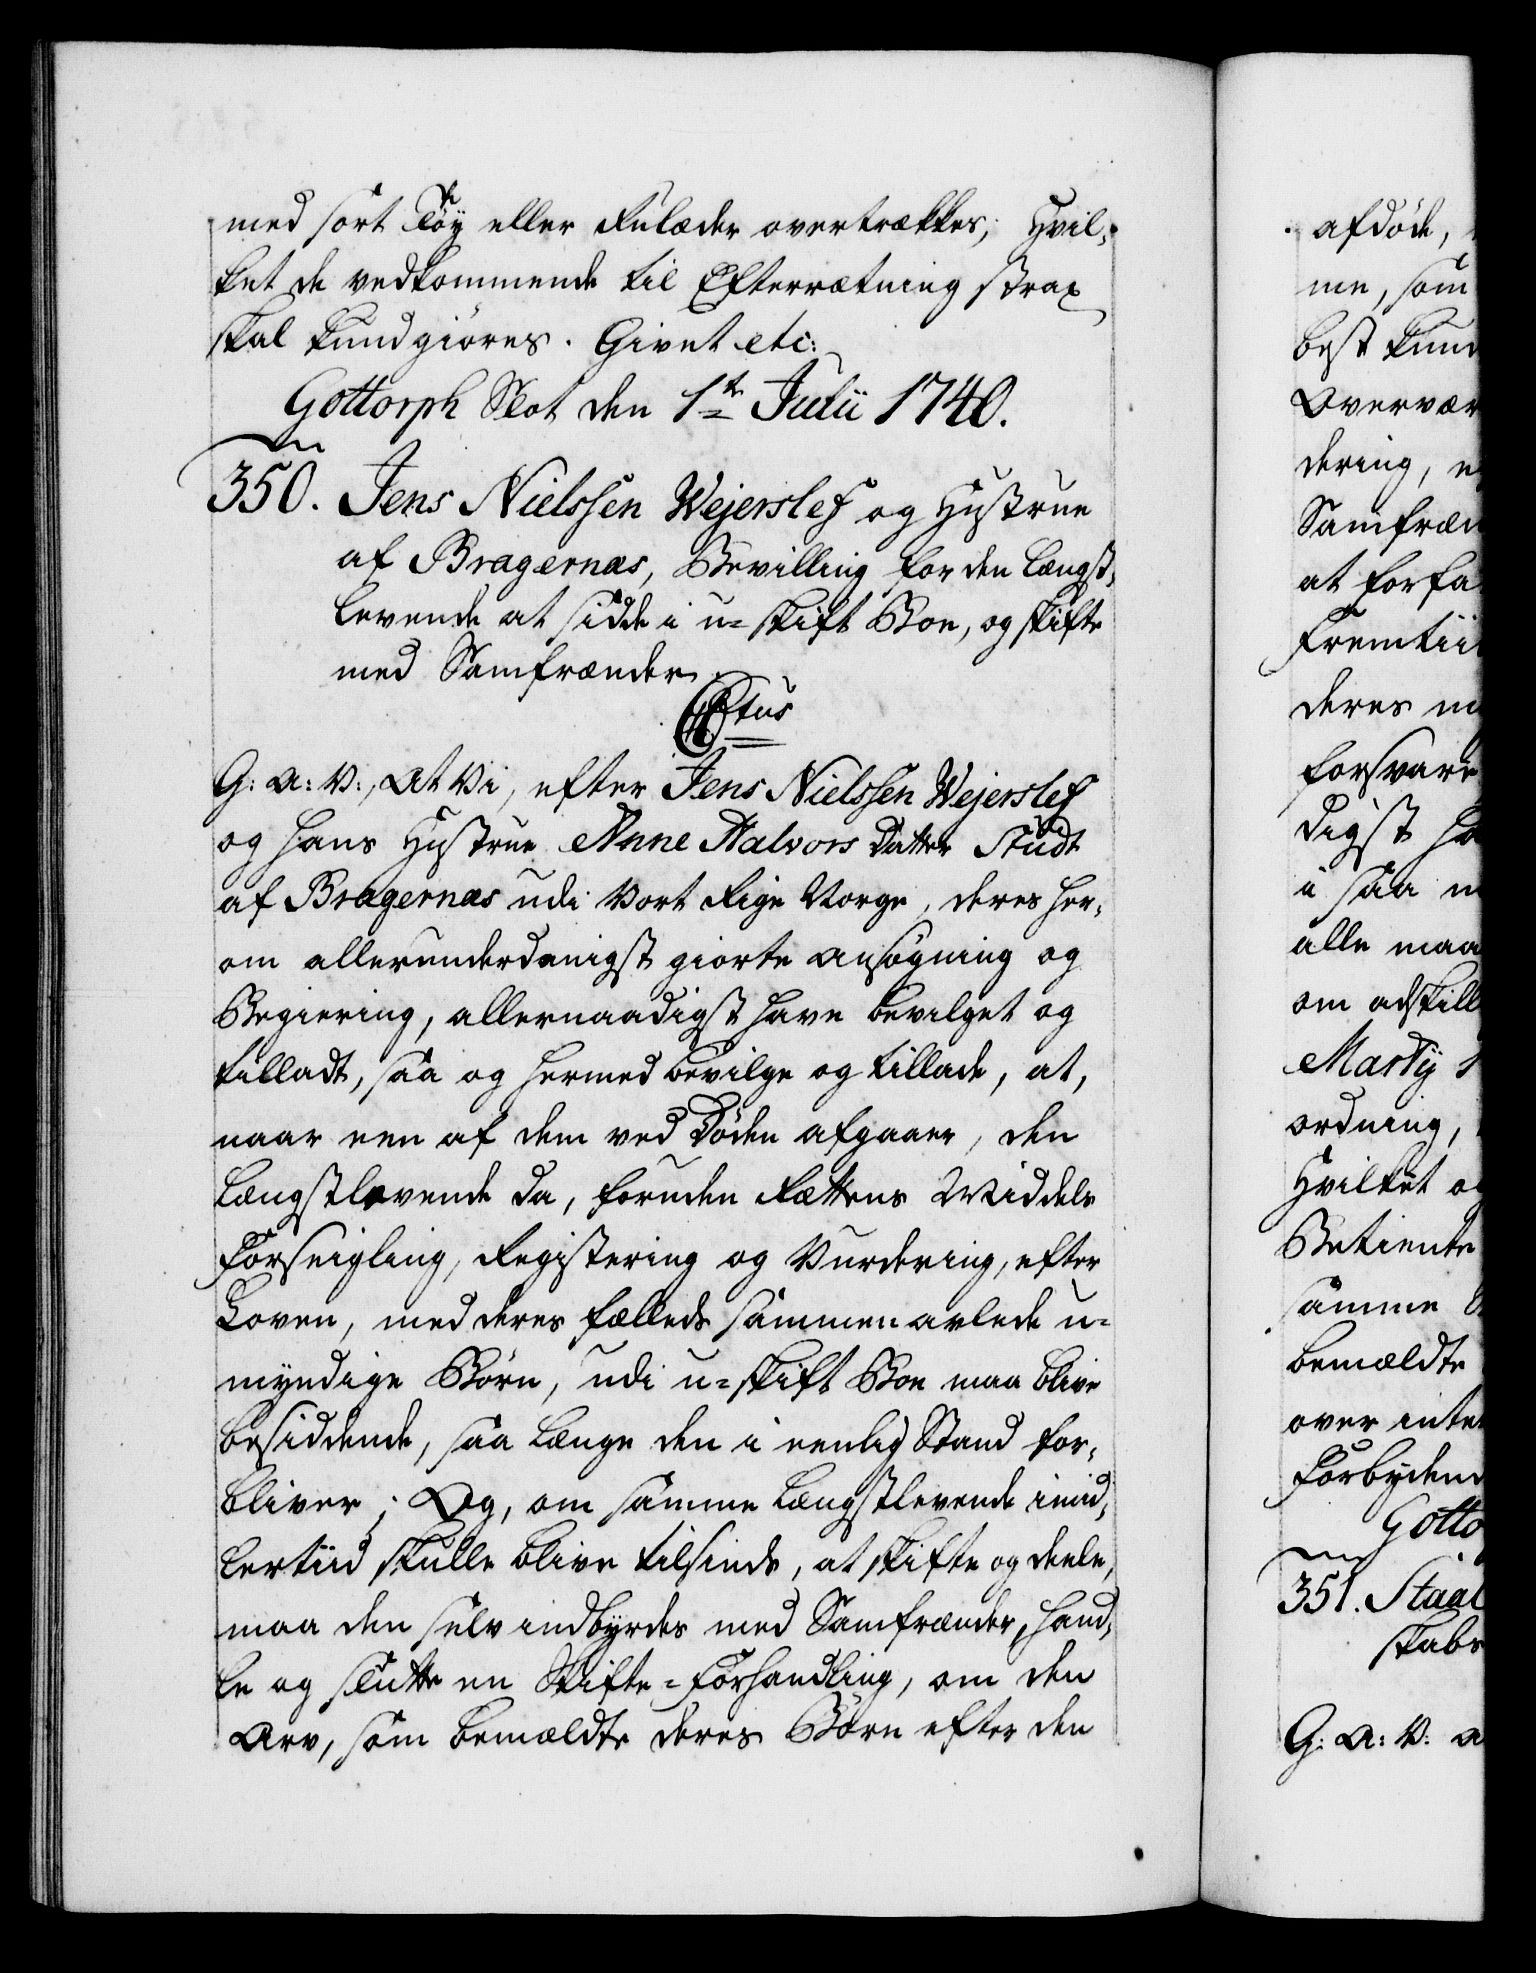 med sort Tøy eller Rulæder overtrækkes; Hvil-
ket de vedkommende til Efterretning strax
skal kundgiøres. Givet etc:
Gottorph Slot den 1te Julii 1740.
350. Jens Nielssen Wejerslef og Hustrue
af Bragernæs, Bevilling for den Længst-
levende at sidde i u-skift Boe, og skifte
med Samfrænder.
C 6tus
G: A: V:, At Vi, efter Jens Nielssen Wejerslef
og hans Hustrue Anne Halvors Datter Studt
af Bragernæs udi Vort Rige Norge, deres her-
om allerunderdanigst giorte Ansøgning og
Begiering, allernaadigst have bevilget og
tilladt, saa og hermed bevilge og tillade, at,
naar een af dem ved Døden afgaaer, den
Længstlevende da, foruden Rettens Middels
Forseigling, Registering og Vurdering, efter
Loven, med deres fælleds sammenavlede u-
myndige Børn, udi u-skift Boe maa blive
besiddende, saa længe den i eenlig Stand for-
bliver; Og, om samme Længstlevende imid-
lertiid skulle blive tilsinds, at skifte og deele,
maa den selv indbyrdes med Samfrænder, hand-
le og slutte en Skifte-Forhandling, om den
Arv, som bemældte deres Børn efter den
afdøde,
me, som
best kund
Overvær
dering, e
Samfræn
at forfa
Fremtii
deres m
forsvare
digst ha
i saa m
alle maa
om adskill
Martij
ordning,
Hvilket og
Betiente
samme
bemældte
over inte
Forbydend
Gotto
351. Staal
skabs
G: A: V: A